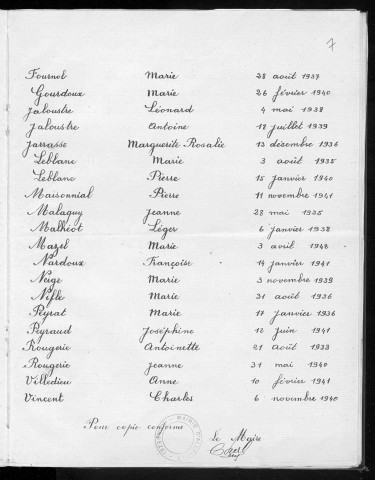 7
Fournol Marie 28 août 1937
Gourdoux Marie 26 février 1940
Jaloustre Léonard 4 mai 1938
Jaloustre Antoine 18 juillet 1939
Jarrasse Marguerite Rosalie 13 décembre 1936
Leblanc Marie 3 août 1935
Leblanc Pierre 15 janvier 1940
Maisonnial Pierre 11 novembre 1941
Malaguy Jeanne 28 mai 1935
Malhéot Léger 6 janvier 1938
Mazel Marie 3 avril 1948
Nardoux Françoise 14 janvier 1941
Neige Marie 3 novembre 1939
Nifle Marie 31 août 1936
Peyrat Marie 17 janvier 1936
Peyraud Joséphine 12 juin 1941
Rougerie Antoinette 21 août 1938
Rougerie Jeanne 31 mai 1940
Villedieu Anne 10 février 1941
Vincent Charles 6 novembre 1940
Pour copie conforme
Le Maire